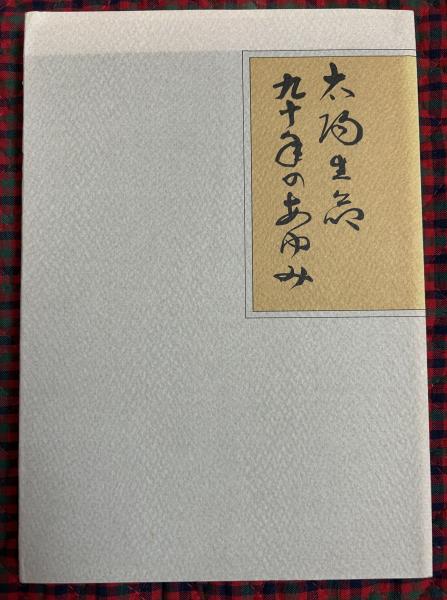 太陽生命
九十年のあゆみ